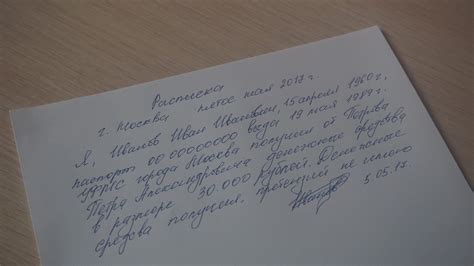 Расписка
г. Москва пятое мая 2017 г.
Я, Иванов Иван Иванович, 15 апреля 1960 г.
паспорт 00 00000000 выдан 19 мая 1984 г.
УФМС города Москва получил от Петрова
Петра Александровича денежные средства
в размере 30.000 рублей. Денежные
средства получил, претензий не имею
5.05.17.